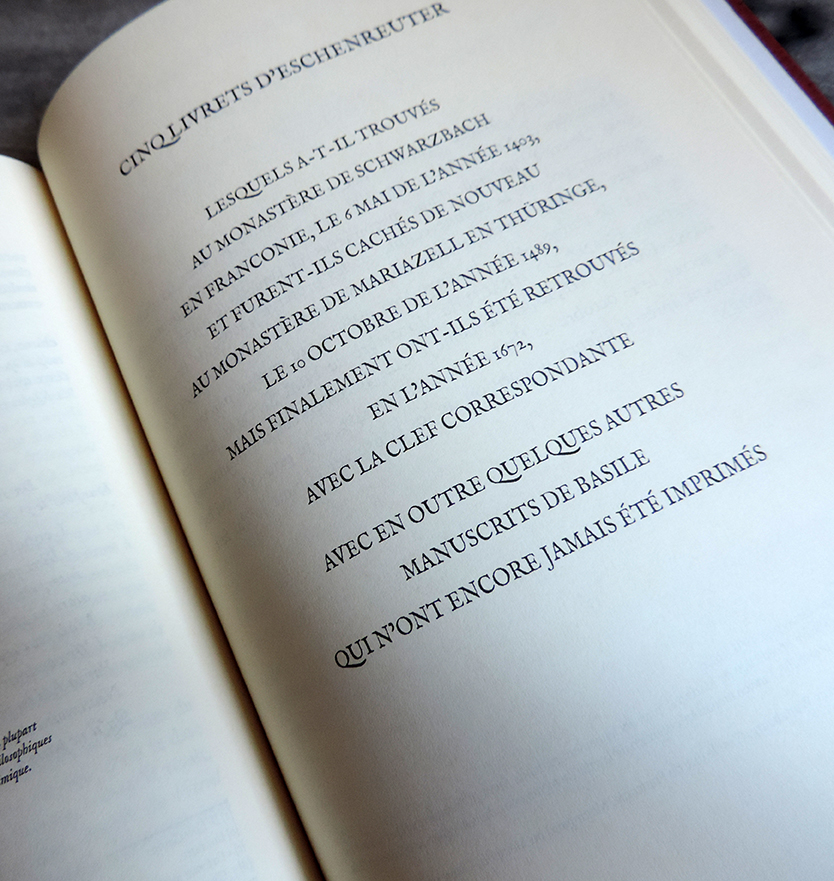 plupart
losophiques
mique.
CINQ LIVRETS D'ESCHENREUTER
LESQUELS A-T-IL TROUVÉS
AU MONASTÈRE DE SCHWARZBACH
EN FRANCONIE, LE 6 MAI DE L'ANNÉE 1403,
ET FURENT-ILS CACHÉS DE NOUVEAU
AU MONASTÈRE DE MARIAZELL EN THÜRINGE,
LE 10 OCTOBRE DE L'ANNÉE 1489,
MAIS FINALEMENT ONT-ILS ÉTÉ RETROUVÉS
EN L'ANNÉE 1672,
AVEC LA CLEF CORRESPONDANTE
AVEC EN OUTRE QUELQUES AUTRES
MANUSCRITS DE BASILE
QUI N'ONT ENCORE JAMAIS ÉTÉ IMPRIMÉS